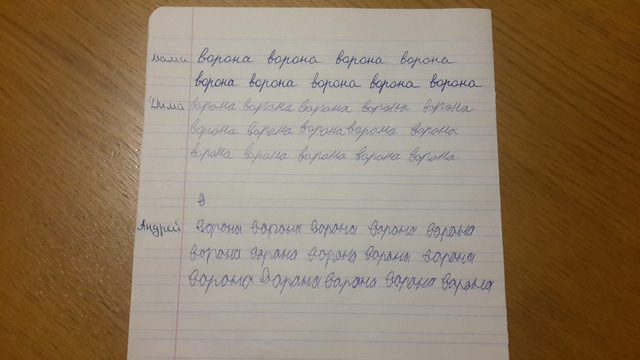 мама ворона ворона ворона ворона
ворона ворона ворона ворона ворона
Дима ворона ворона ворона ворона ворона
ворона ворона ворона ворона ворона
ворона ворона ворона ворона ворона
В
Андрей ворона ворона ворона ворона ворона
ворона ворона ворона ворона ворона
ворона ворона ворона ворона ворона